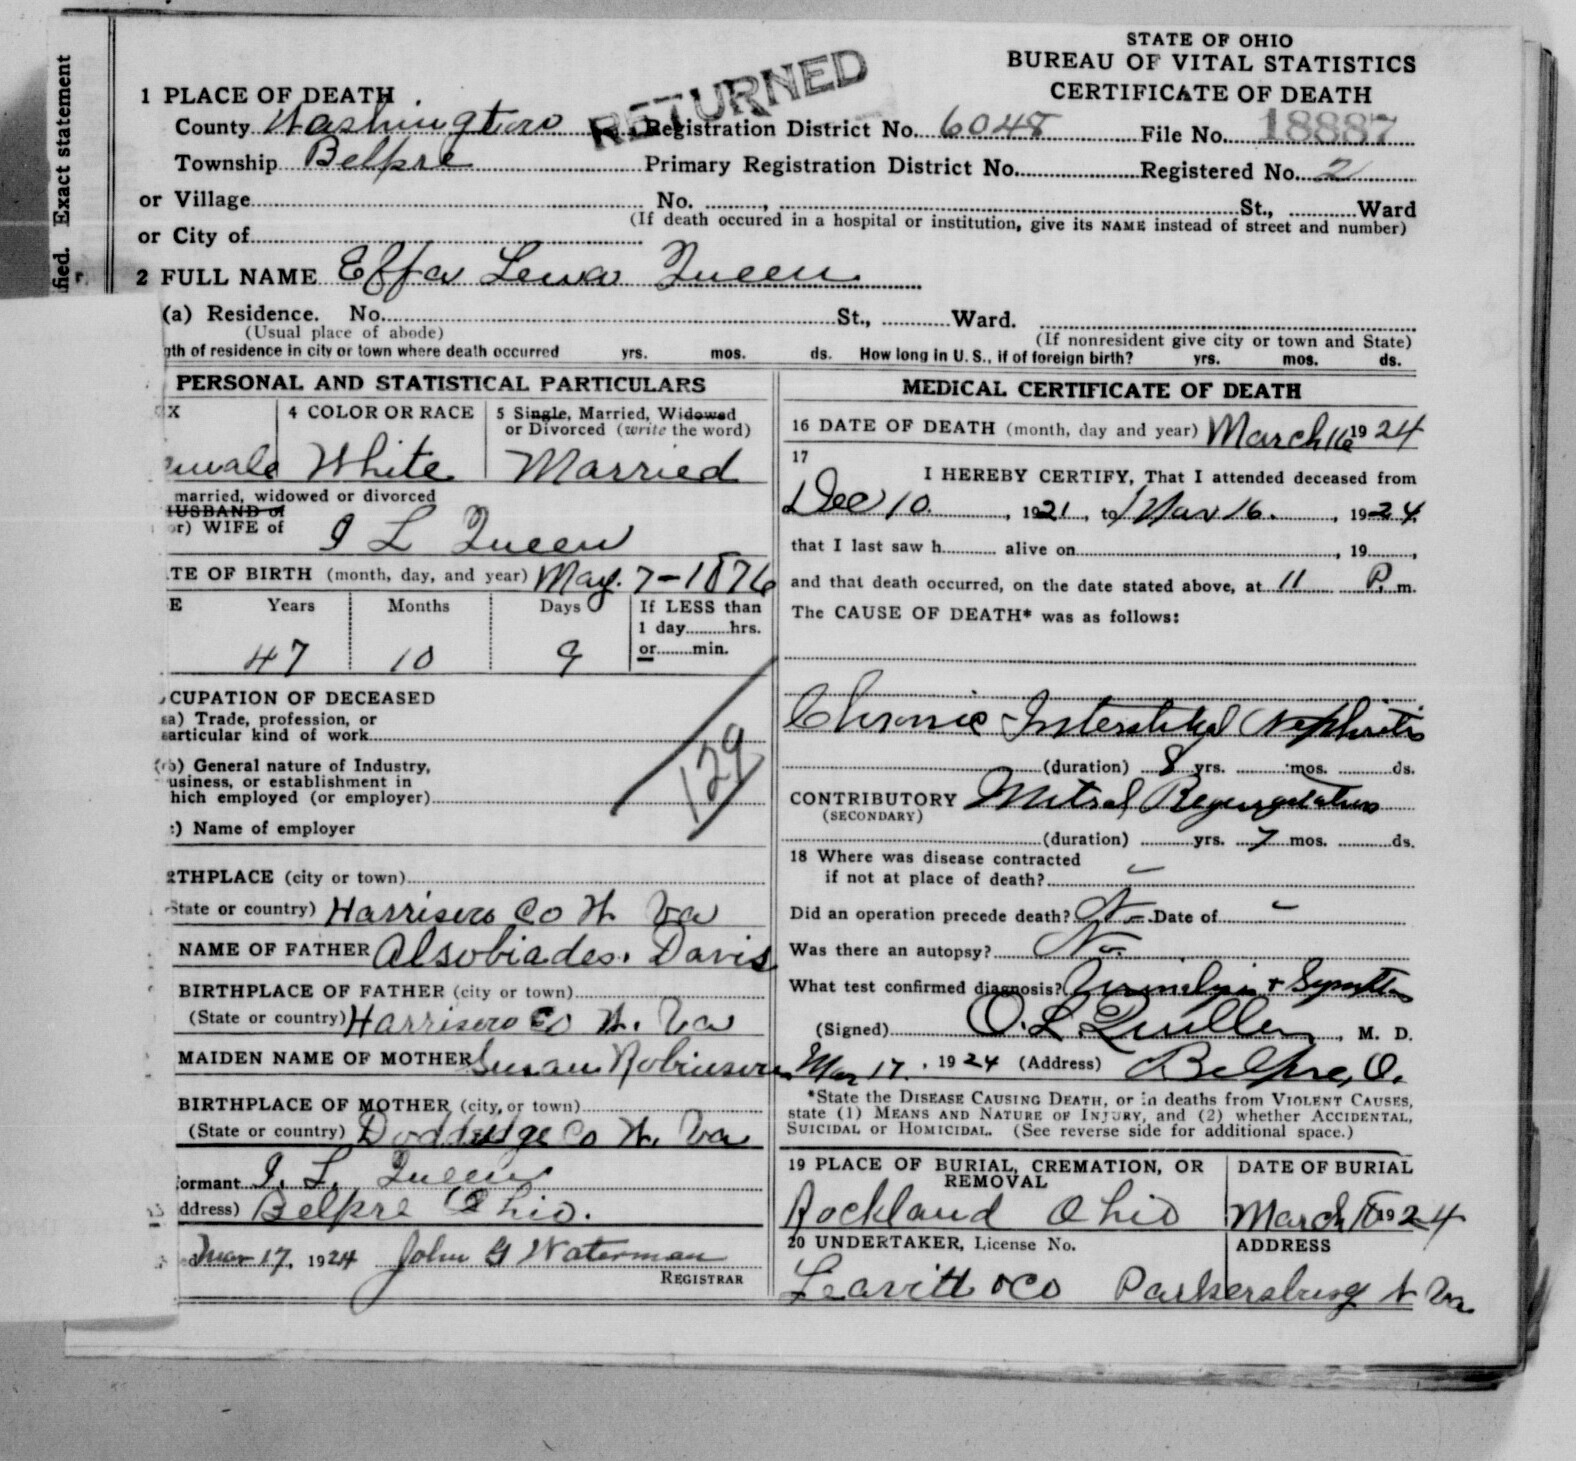 STATE OF OHIO
BUREAU OF VITAL STATISTICS
CERTIFICATE OF DEATH
RETURNED
fied. Exact statement
1 PLACE OF DEATH
County Washington Registration District No. 6048 File No. 18887
Township Belpre Primary Registration District No. Registered No. 2
or Village No. , St., Ward
(If death occured in a hospital or institution, give its NAME instead of street and number)
or City of
2 FULL NAME Effa Lena Queen
(a) Residence. No. St., Ward.
(Usual place of abode) (If nonresident give city or town and State)
gth of residence in city or town where death occurred yrs. mos. ds. How long in U. S., if of foreign birth? yrs. mos. ds.
PERSONAL AND STATISTICAL PARTICULARS
X 4 COLOR OR RACE 5 Single, Married, Widowed
or Divorced (write the word)
emale White Married
married, widowed or divorced
HUSBAND of
or) WIFE of I L Queen
TE OF BIRTH (month, day, and year) May. 7-1876
E Years Months Days If LESS than
1 day hrs.
or min.
47 10 9
CUPATION OF DECEASED
a) Trade, profession, or
articular kind of work
(b) General nature of Industry,
usiness, or establishment in
hich employed (or employer)
129
) Name of employer
THPLACE (city or town)
State or country) Harrison Co W. Va
NAME OF FATHER Alsobiades. Davis
BIRTHPLACE OF FATHER (city or town)
(State or country) Harrison Co W. Va
MAIDEN NAME OF MOTHER Susan Robinson
BIRTHPLACE OF MOTHER (city, or town)
(State or country) Doddridge Co W. Va
ormant I. L. Queen
ddress) Belpre Ohio.
Mar 17, 1924 John G Waterman
REGISTRAR
MEDICAL CERTIFICATE OF DEATH
16 DATE OF DEATH (month, day and year) March 16 1924
17
I HEREBY CERTIFY, That I attended deceased from
Dec 10 , 1921, to Mar 16. , 1924.
that I last saw h alive on , 19 ,
and that death occurred, on the date stated above, at 11 P. m.
The CAUSE OF DEATH* was as follows:
Chronic Interstitial Nephritis
(duration) 8 yrs. mos. ds.
CONTRIBUTORY Mitral Regurgitation
(SECONDARY)
(duration) yrs. 7 mos. ds.
18 Where was disease contracted
if not at place of death? -
Did an operation precede death? No Date of -
Was there an autopsy? No.
What test confirmed diagnosis? Urinalysis +
(Signed) O. L. , M. D.
Mar 17, 1924 (Address) Belpre, O.
*State the DISEASE CAUSING DEATH, or in deaths from VIOLENT CAUSES,
state (1) MEANS AND NATURE OF INJURY, and (2) whether ACCIDENTAL,
SUICIDAL or HOMICIDAL. (See reverse side for additional space.)
19 PLACE OF BURIAL, CREMATION, OR
REMOVAL
DATE OF BURIAL
Rockland Ohio March 1924
20 UNDERTAKER, License No. ADDRESS
Leavitt & Co Parkersburg W Va